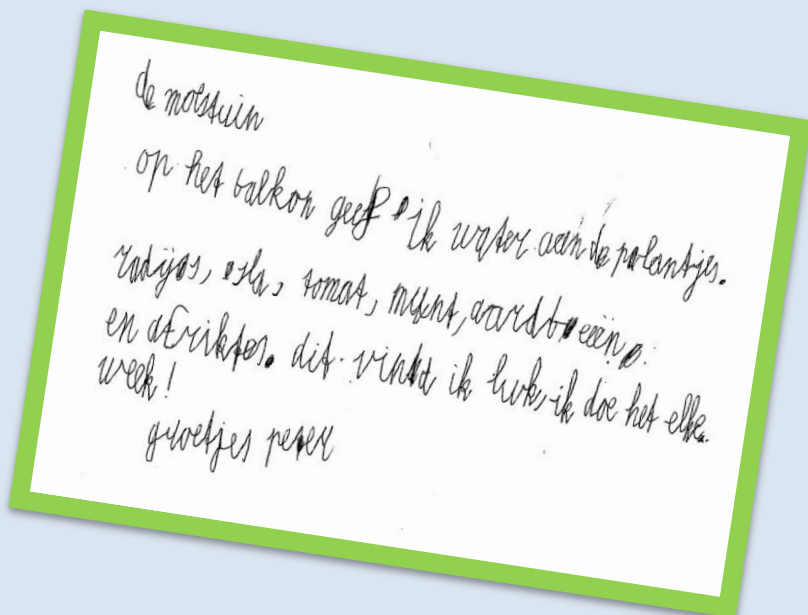 de moestuin
op het balkon geef ik water aan de polantjes.
radijos, sla, tomat, munt, aardbeeïn
en afriktos. dit vindt ik leuk, ik doe het elke
week!
groetjes peter